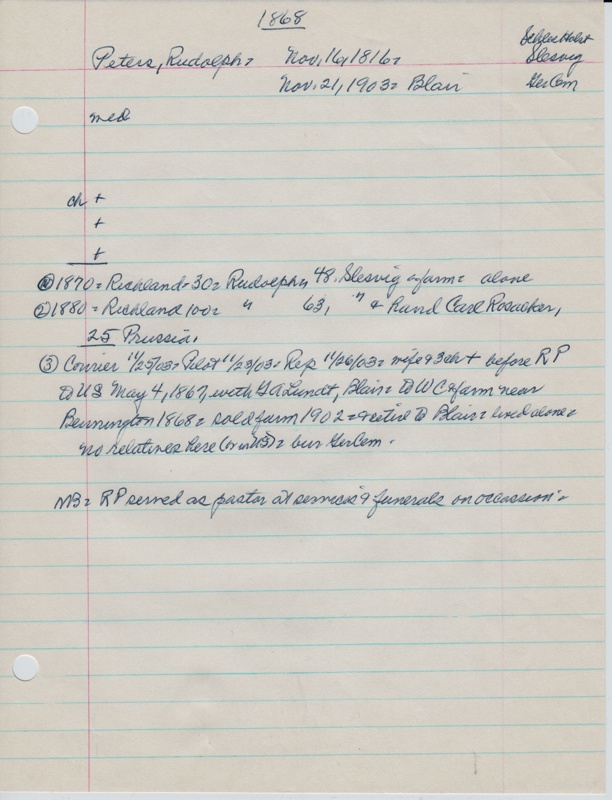 1868
Schles Holst
Peters, Rudolph = Nov. 16, 1816 = Slesvig
Nov. 21, 1903 = Blair GerCem
med
ch +
+
+
① 1870 = Richland = 30 = Rudolph, 48, Slesvig = farm = alone
② 1880 = Richland 100 = " 63, " & hand Carl Rosacker,
25 Prussia.
③ Courier 11/25/03 = Pilot 11/25/03 = Rep 11/26/03 = wife & 3 ch + before RP
to US May 4, 1867, with Lundt, Blair = to WC & farm near
Bennington 1868 = sold farm 1902 = & retire to Blair = lived alone =
no relatives here (or in US) = bur GerCem.
NB = RP served as pastor at services & funerals on occassion =